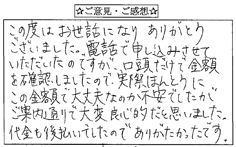 ☆ご意見・ご感想☆
この度はお世話になり ありがとう
ございました。電話で申し込みさせて
いただいたのですが、口頭だけで金額
を確認しましたので、実際ほんとうに
この金額で大丈夫なのか不安でしたが
ご案内通りで大変良心的だと思いました。
代金も後払いでしたのでありがたかったです。